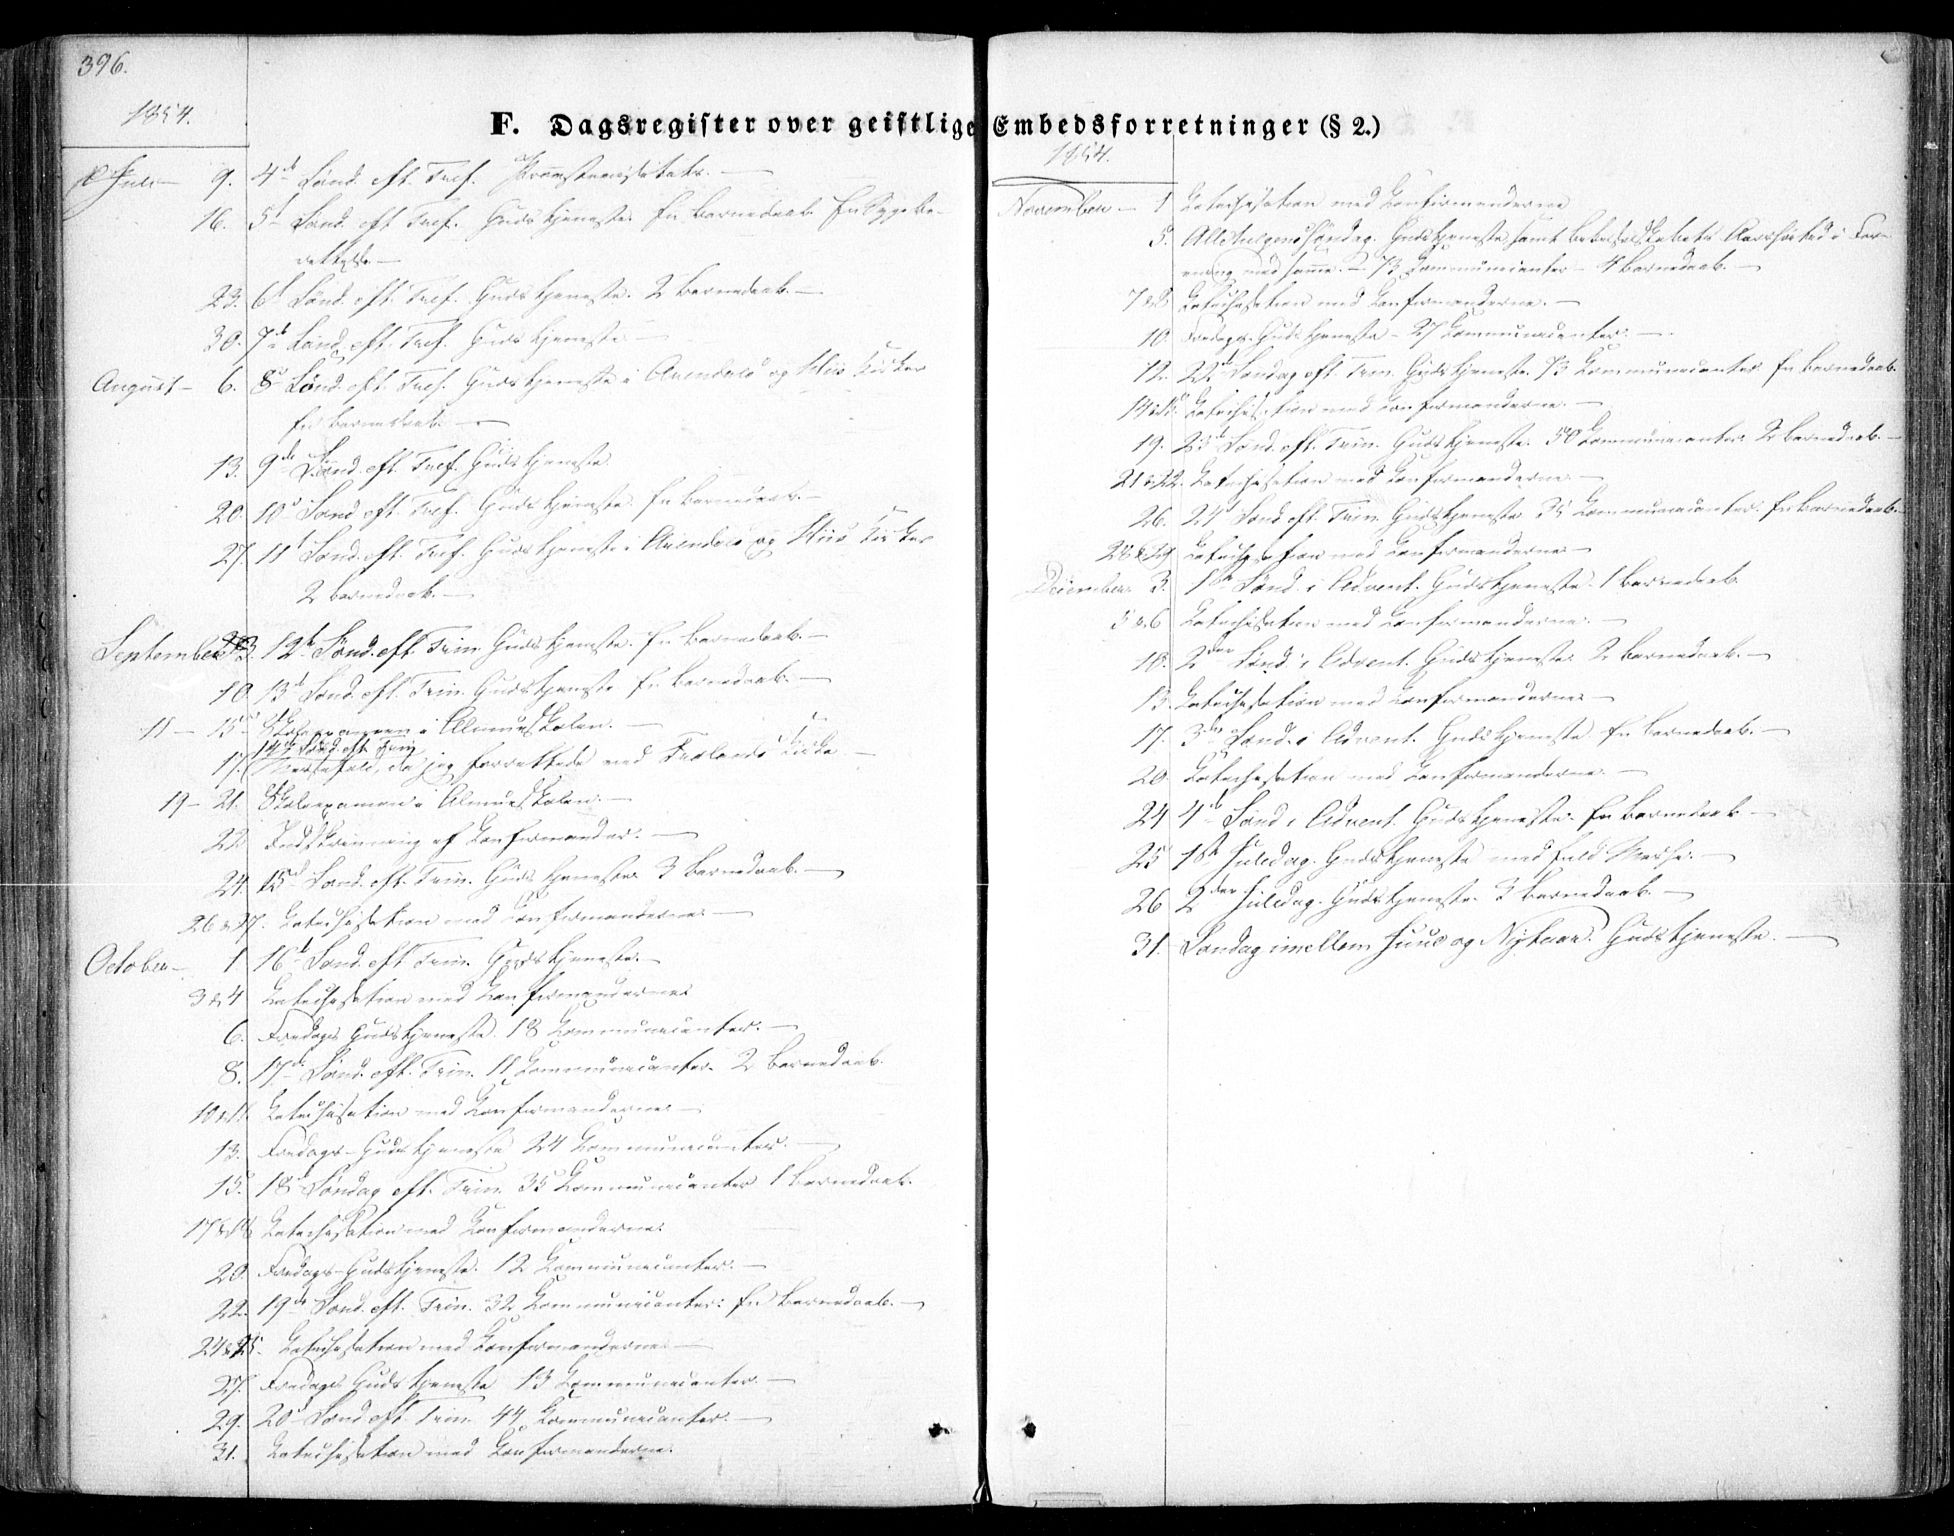 396.
1854.
F. Dagsregister over geistlige Embedsforretninger (§ 2.)
Juli — 9. 4de Sønd. eft. Tref.
16. 5te Sønd. eft. Tref. Gudstjeneste. En Barnedaab. En Sygebe-
rettelse. —
23. 6te Sønd. eft. Tref. Gudstjeneste. 2 Barnedaab. —
30. 7de Sønd. eft. Tref. Gudstjeneste —
August — 6. 8de Sønd. eft. Tref. Gudstjeneste i Arendals og Hiis Kirker
En Barnedaab. —
13. 9de Sønd. eft. Tref. Gudstjeneste
20. 10de Sønd. eft. Tref. Gudstjeneste. En Barnedaab. —
27. 11te Sønd. eft. Tref. Gudstjeneste i Arendals og Hiis Kirker
2 Barnedaab. —
September 3. 12te Sønd. eft. Trin. Gudstjeneste. En Barnedaab. —
10. 13de Sønd. eft. Trin. Gudstjeneste En Barnedaab. —
11 — 15 Skoleexamen i Almueskolen. —
14de Sønd. eft. Trin
17. Messefald, da jeg forrettede ved Froelands Kirke —
19 — 21. Skoleexamen i Almueskolen. —
22 Indskrivning af Confirmander. —
24. 15de Sønd. eft. Trin. Gudstjeneste 3 Barnedaab. —
26 & 27. Catechisation med Confirmanderne —
October — 1 16de Sønd. eft. Trin. Gudstjeneste. —
3 & 4 Catechisation med Confirmanderne
6. Fredags Gudstjeneste. 18 Communicanter. —
8. 17de Sønd. eft. Trin. 11 Communicanter. 2 Barnedaab.
10 & 11. Catechisation med Confirmanderne —
13. Fredags-Gudstjeneste 24 Communicanter. —
15. 18de Søndag eft. Trin. 35 Communicanter 1 Barnedaab.
17 & 18 Catechisation med Confirmanderne.
20. Fredags-Gudstjeneste. 12 Communicanter. —
22. 19de Sønd. eft. Trin. 32 Communicanter. En Barnedaab. —
24 & 25. Catechisation med Confirmanderne —
27. Fredags Gudstjeneste 13 Communicanter —
29. 20de Sønd eft. Trin. 44 Communicanter. —
31. Catechisation med Confirmanderne.
1854.
November — 1 Catechisation med Confirmanderne
5. Allehelgens Søndag. Gudstjeneste, samt Bibelselskabets Aarshøitid i For-
ening med samme. — 73 Communicanter — 4 Barnedaab. —
7 & 8 Catechisation med Confirmanderne. —
10. Fredags-Gudstjeneste — 27 Communicanter. —
12. 22de Søndag eft. Trin. Gudstjeneste 73 Communicanter En Barnedaab.
14 & 15. Catechisation med Confirmanderne. —
19. 23de Sønd. eft. Trin. Gudstjeneste. 50 Communicanter. 2 Barnedaab. —
21 & 22. Catechisation med Confirmanderne —
26. 24de Sønd eft. Trin. Gudstjeneste 35 Communicanter. En Barnedaab. —
28 & 29 Catechisation med Confirmanderne —
December 3. 1ste Sønd. i Advent. Gudstjeneste. 1 Barnedaab.
5 & 6 Catechisation med Confirmanderne. —
10. 2den Sønd. i Advent. Gudstjeneste. 2 Barnedaab. —
13. Catechisation med Confirmanderne —
17. 3die Sønd. i Advent. Gudstjeneste En Barnedaab. —
20 Catechisation med Confirmanderne. —
24 4de Sønd i Advent. Gudstjeneste. En Barnedaab —
25 1ste Juledag. Gudstjeneste med fuld Messe. —
26 2den Juledag. Gudstjeneste. 3 Barnedaab. —
31. Søndag imellem Juul og Nytaar. Gudstjeneste. —